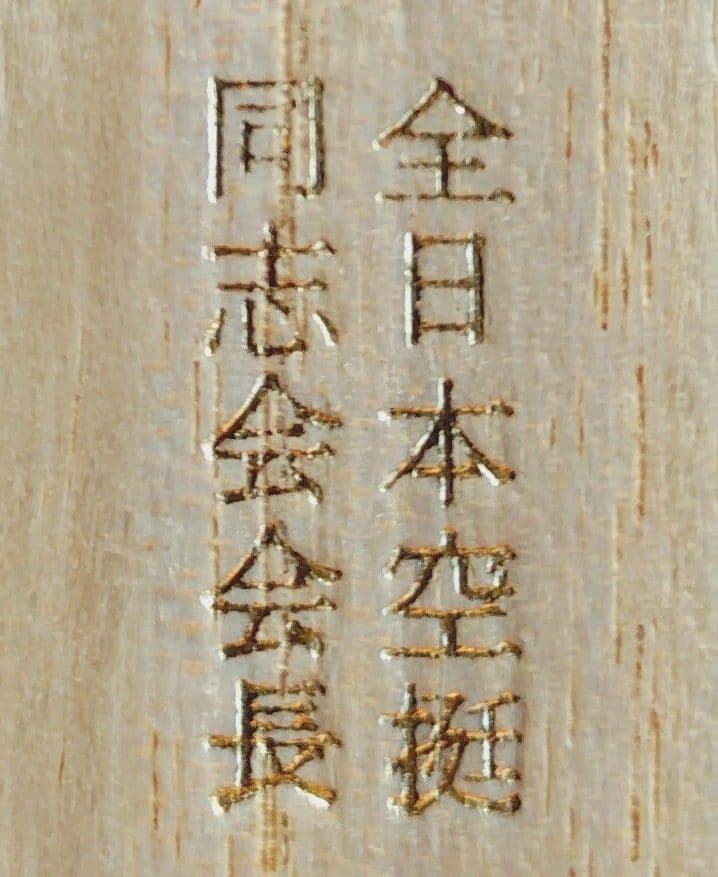 全日本空挺
同志会会長